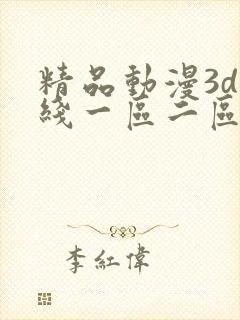 精品動漫3d
綫一區二區
李紅偉